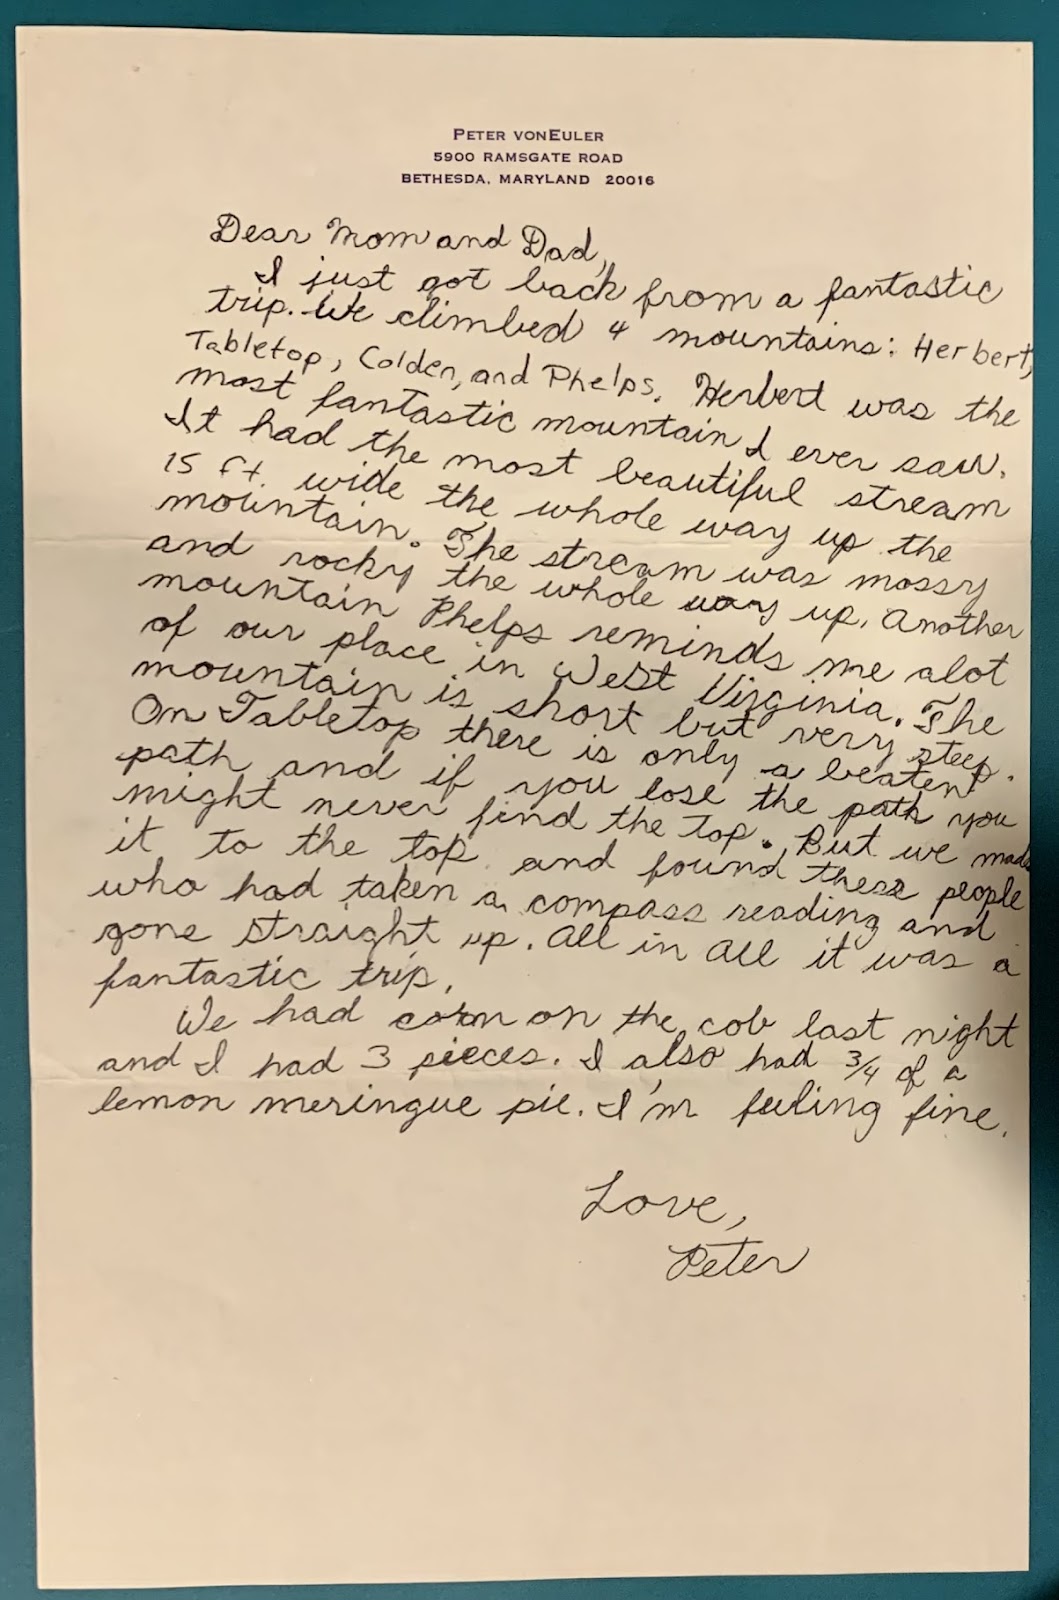 PETER VONEULER
5900 RAMSGATE ROAD
BETHESDA, MARYLAND 20016
Dear Mom and Dad,
I just got back from a fantastic
trip. We climbed 4 mountains: Herbert,
Tabletop, Colden, and Phelps. Herbert was the
most fantastic mountain I ever saw.
It had the most beautiful stream
15 ft. wide the whole way up the
mountain. The stream was mossy
and rocky the whole way up. Another
mountain Phelps reminds me alot
of our place in West Virginia. The
mountain is short but very steep.
On Tabletop there is only a beaten
path and if you lose the path you
might never find the top. But we made
it to the top and found these people
who had taken a compass reading and
gone straight up. All in all it was a
fantastic trip.
We had corn on the cob last night
and I had 3 pieces. I also had 3/4 of a
lemon meringue pie. I'm feeling fine.
Love,
Peter